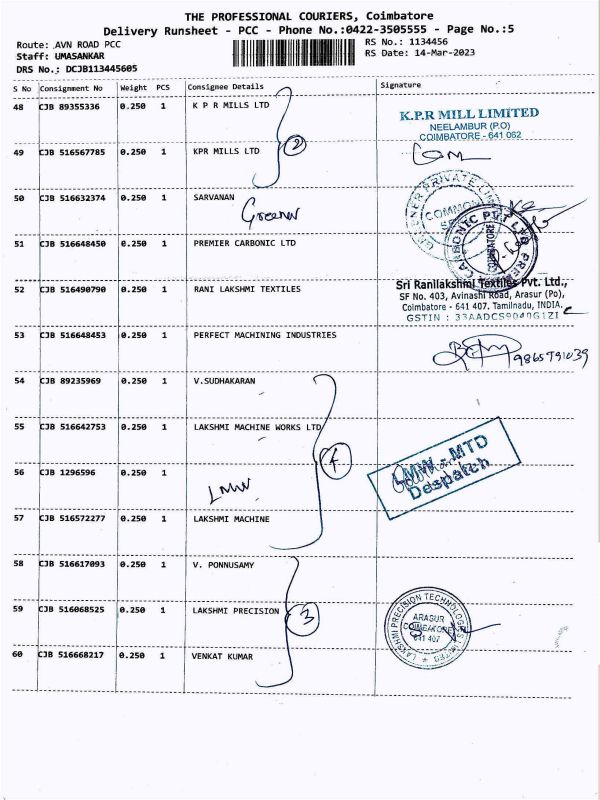 THE PROFESSIONAL COURIERS, Coimbatore
Delivery Runsheet - PCC - Phone No.:0422-3505555 - Page No.:5
Route: AVN ROAD PCC RS No.: 1134456
Staff: UMASANKAR RS Date: 14-Mar-2023
DRS No.: DCJB113445605
S No Consignment No Weight PCS Consignee Details Signature
48 CJB 89355336 0.250 1 K P R MILLS LTD
K.P.R MILL LIMITED
NEELAMBUR (P.O)
COIMBATORE - 641 062
2
49 CJB 516567785 0.250 1 KPR MILLS LTD
50 CJB 516632374 0.250 1 SARVANAN
Greener
GREENER PRIVATE LIMITED
COMMON
51 CJB 516648450 0.250 1 PREMIER CARBONIC LTD
CARBONIC PVT LTD
COIMBATORE
52 CJB 516490790 0.250 1 RANI LAKSHMI TEXTILES
Sri Ranilakshmi Textiles Pvt. Ltd.,
SF No. 403, Avinashi Road, Arasur (Po),
Coimbatore - 641 407. Tamilnadu, INDIA.
GSTIN : 33AADCS9040G1ZI
53 CJB 516648453 0.250 1 PERFECT MACHINING INDUSTRIES
9865791039
54 CJB 89235969 0.250 1 V.SUDHAKARAN
55 CJB 516642753 0.250 1 LAKSHMI MACHINE WORKS LTD
4
LMW - MTD
Despatch
56 CJB 1296596 0.250 1
LMW
57 CJB 516572277 0.250 1 LAKSHMI MACHINE
58 CJB 516617093 0.250 1 V. PONNUSAMY
59 CJB 516068525 0.250 1 LAKSHMI PRECISION
3
LAKSHMI PRECISION TECHNOLOGIES LIMITED
ARASUR
COIMBATORE
641 407
60 CJB 516668217 0.250 1 VENKAT KUMAR